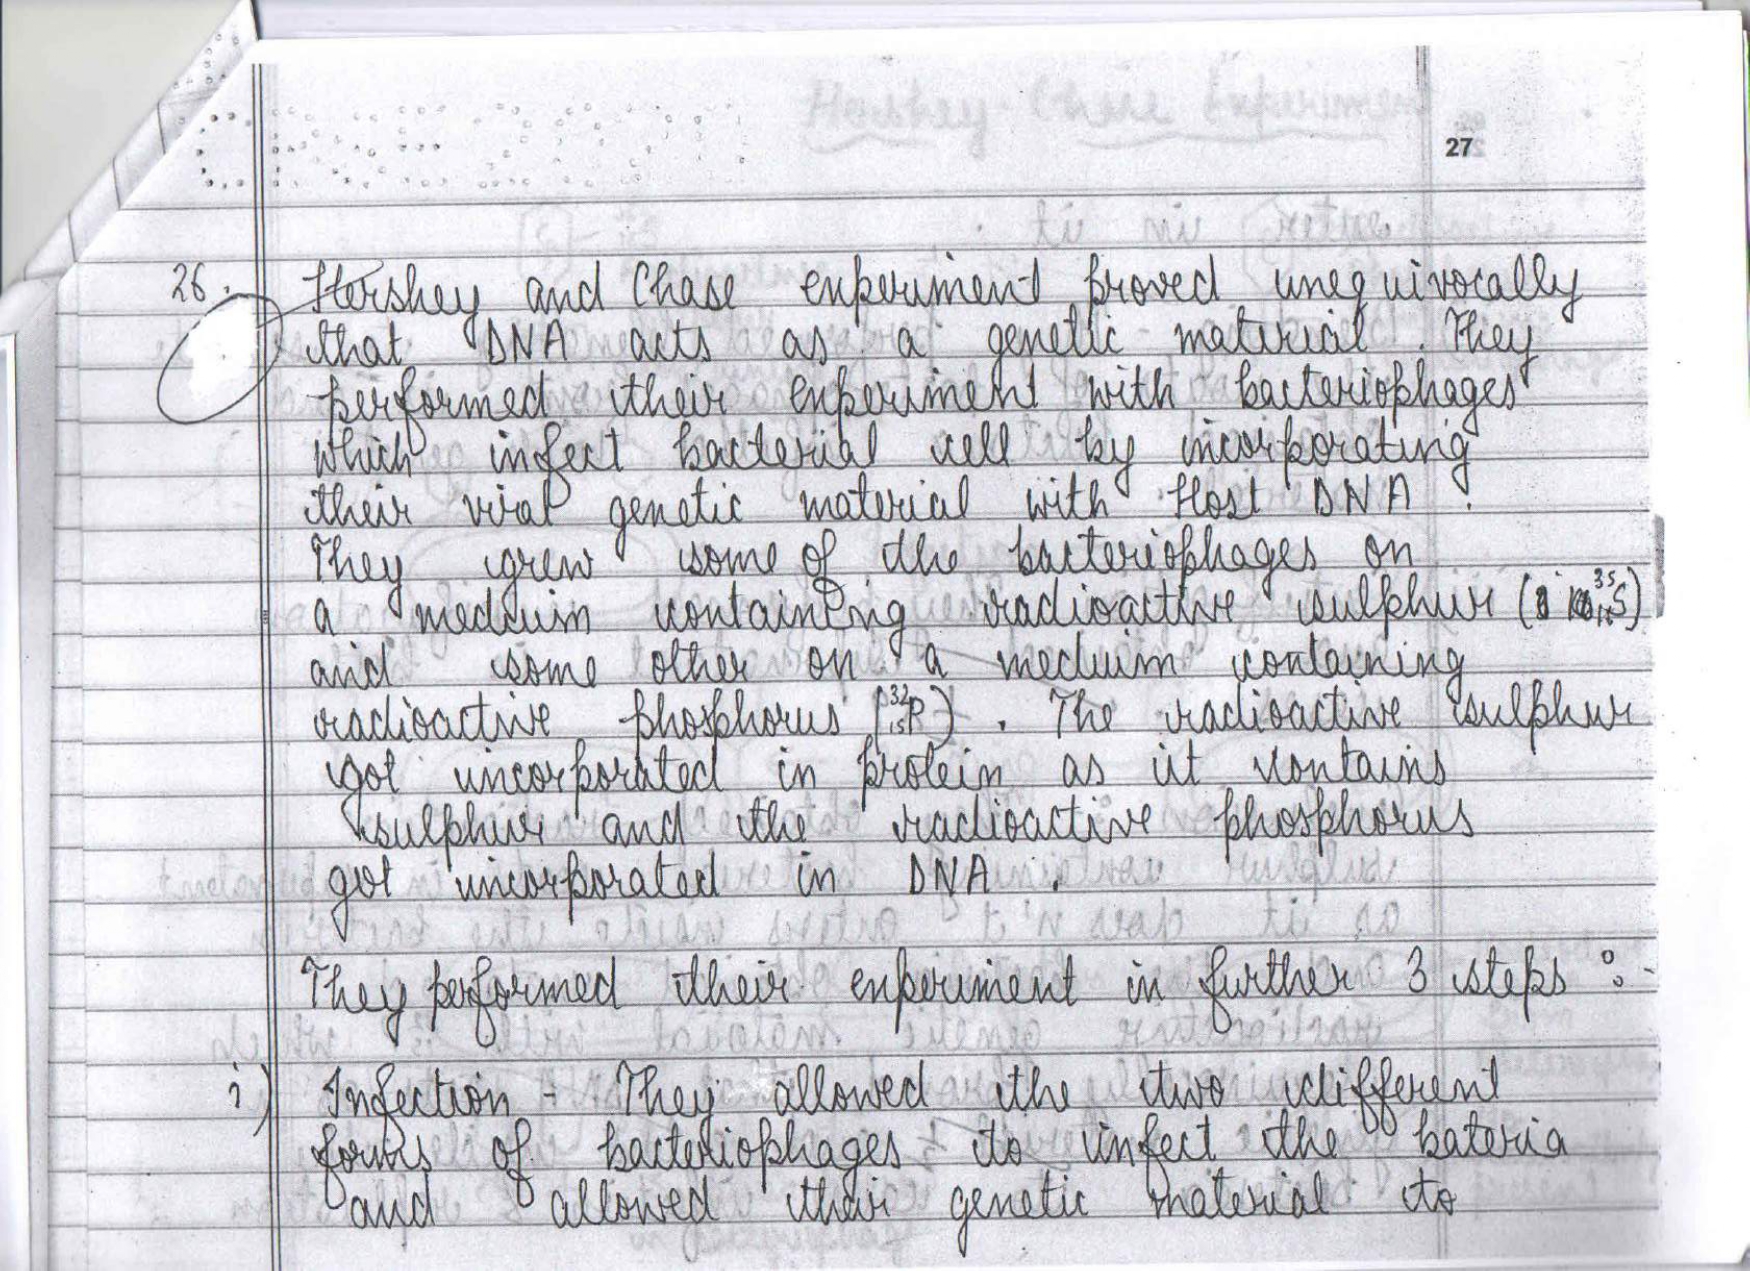 27
26. Hershey and Chase experiment proved unequivocally
that DNA acts as a genetic material. They
performed their experiment with bacteriophages
which infect bacterial cell by incorporating
their viral genetic material with Host DNA.
They grew some of the bacteriophages on
a medium containing radioactive sulphur (³⁵S)
and some other on a medium containing
radioactive phosphorus (³²₁₅P). The radioactive sulphur
got incorporated in protein as it contains
sulphur and the radioactive phosphorus
got incorporated in DNA.
They performed their experiment in further 3 steps :-
i) Infection - They allowed the two different
forms of bacteriophages to infect the bateria
and allowed their genetic material to